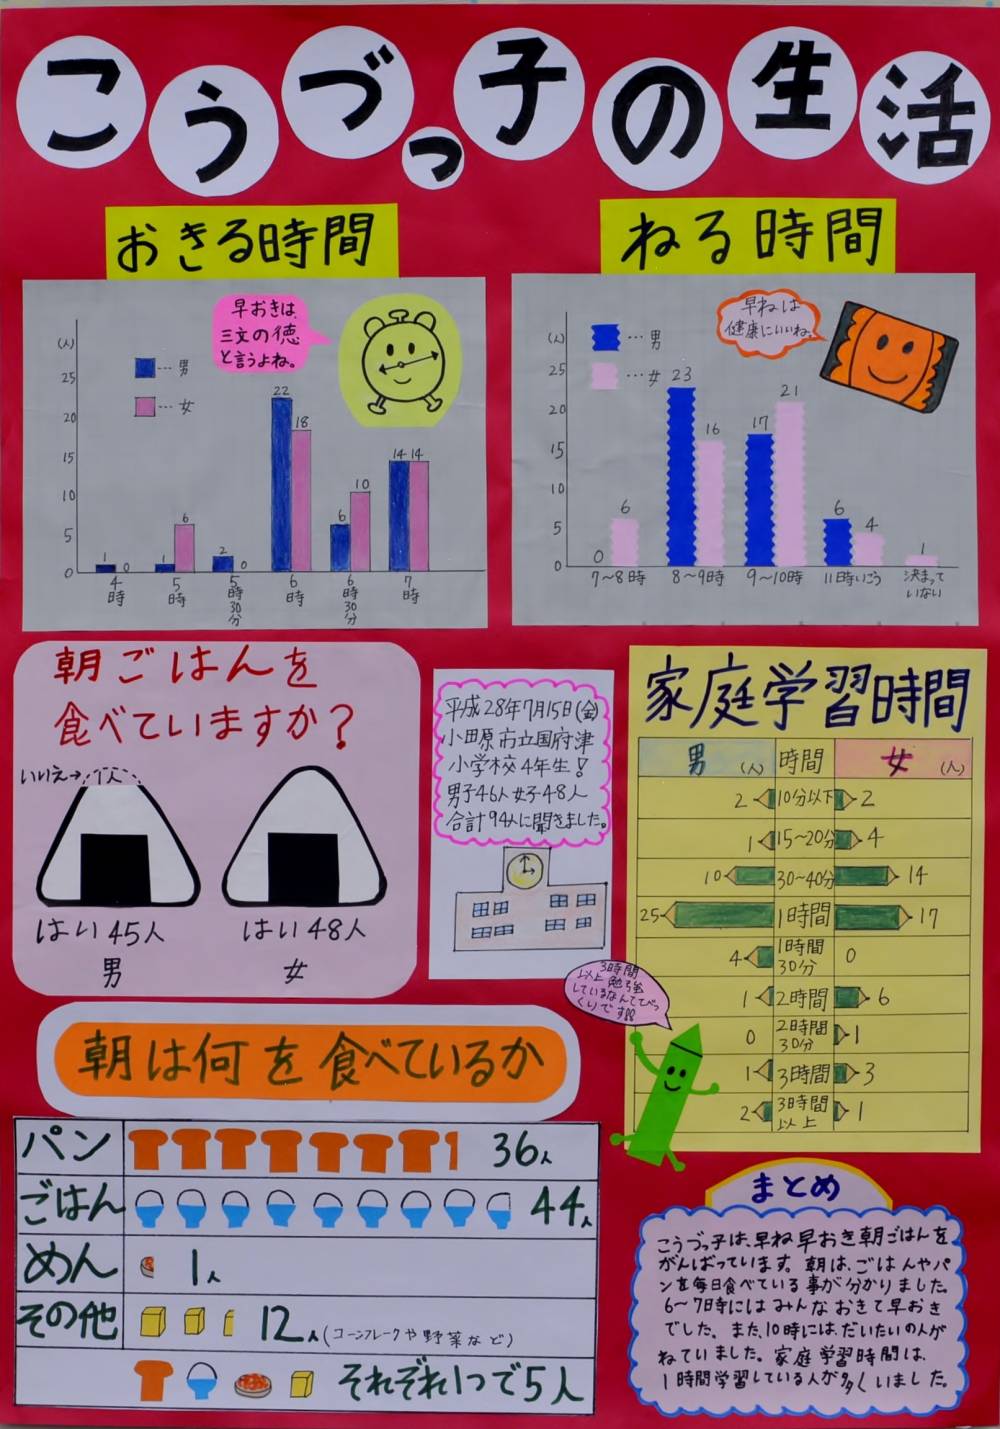 こうづっ子の生活
おきる時間
(人)
25
20
15
10
5
0
…男
…女
早おきは、
三文の徳
と言うよね。
1
0
1
6
2
0
22
18
6
10
14
14
4時
5時
5時30分
6時
6時30分
7時
ねる時間
(人)
25
20
15
10
5
0
…男
…女
早ねは
健康にいいね。
0
6
23
16
17
21
6
4
1
7〜8時
8〜9時
9〜10時
11時いこう
決まって
いない
朝ごはんを
食べていますか?
いいえ→1人
はい45人
男
はい48人
女
平成28年7月15日(金)
小田原市立国府津
小学校4年生!
男子46人女子48人
合計94人に聞きました。
家庭学習時間
男(人) 時間 女(人)
2 10分以下 2
1 15〜20分 4
10 30〜40分 14
25 1時間 17
4 1時間30分 0
1 2時間 6
0 2時間30分 1
1 3時間 3
2 3時間以上 1
3時間
以上勉強
しているなんてびっ
くりです!!
朝は何を食べているか
パン 36人
ごはん 44人
めん 1人
その他 12人(コーンフレークや野菜など)
それぞれ1つで5人
まとめ
こうづっ子は、早ね早おき朝ごはんを
がんばっています。朝は、ごはんやパ
ンを毎日食べている事が分かりました。
6〜7時にはみんなおきて早おき
でした。また、10時には、だいたいの人が
ねていました。家庭学習時間は、
1時間学習している人が多くいました。